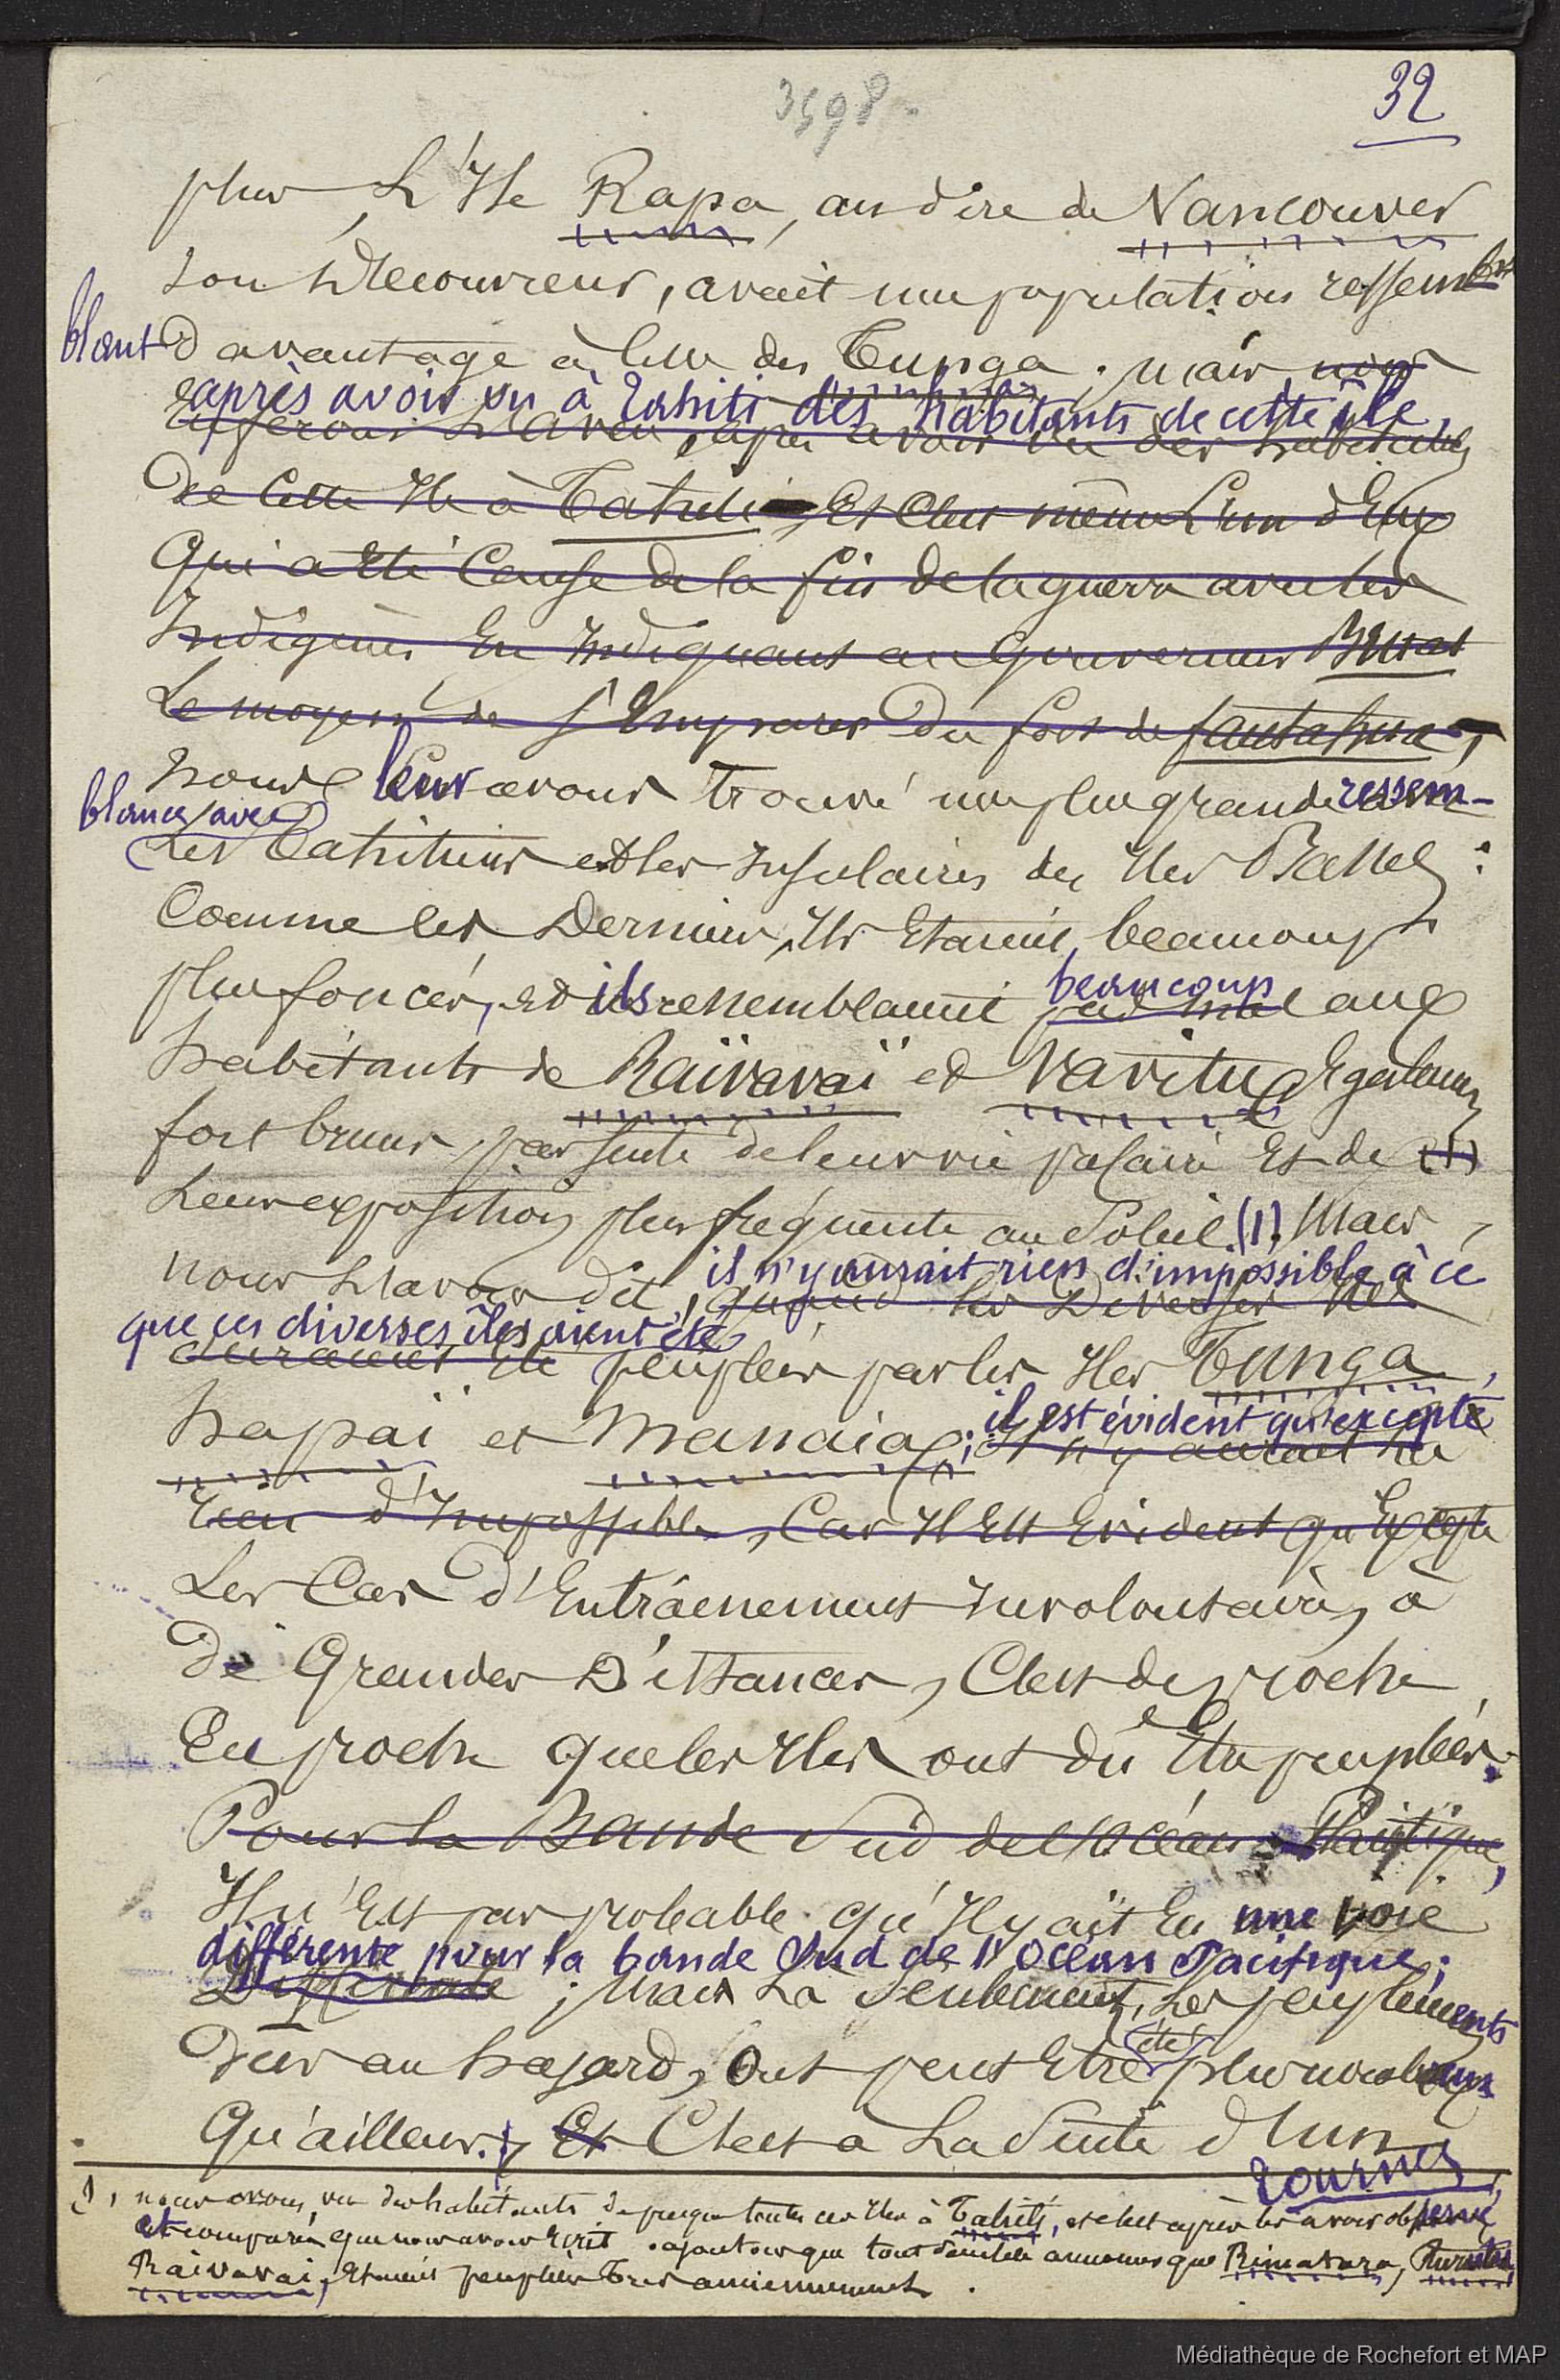 3598
32
plus, L'Ile Rapa, au dire de Vancouver
son Découvreur, avait une population ressem
blant d'avantage à celle des Tunga ; mais nous
après avoir vu à Tahiti des habitants de cette île,
differons D'aveu, après avoir vu des habitants
de Cette Ile à Tahiti Et C'est même L'un d'Eux
Qui a Eté Cause de la fin de la guerre avec les
Indigènes En Indiquant au Gouverneur Bruat
Le moyen de s'Emparer Du fort de fautahua,
nous leur avons trouvé une plus grande ressem-
blance avec
Les Tahitiens et les Insulaires des Iles Basses :
Comme les Derniers, Ils Etaient beaucoup
plus foncés, et ils ressemblaient beaucoup pas mal aux
habitants de Raïvavaï et Vavitu, Egalement
fort bruns par suite de leur vie précaire Et de (1)
Leur exposition plus fréquente au Soleil (1). Mais,
nous L'avons dit, il n'y aurait rien d'impossible à ce
quand les Diverses Iles
que ces diverses îles aient été
auraient Eté peuplées par les Iles Tunga,
hapaï et Manaia ; il est évident qu'excepté
Il n'y aurait là
Rien d'Impossible, Car Il Est Evident qu'Excepté
Les Cas d'Entraînements Involontaires, à
De Grandes Distances, C'est de proche
En proche que les Iles ont dû Etre peuplées.
Pour la Bande Sud de l'Océan Pacifique,
Il n'Est pas probable qu'Il y ait Eu une voie
différente pour la bande Sud de l'Océan Pacifique ;
Differente ; Mais Là Seulement, Les peuplements
Dus au hasard, Ont peut Etre été plus nombreux
Qu'ailleurs. Et C'est à La Suite d'Un
Tournez
1, nous avons vu des habitants de presque toutes ces Iles à Tahiti, et c'est après les avoir observés
et comparés que nous avons Ecrit. ajoutons que tout semble annoncer que Rimatara, Rurutu,
Raivavai, Etaient peuplées Très anciennement.
Médiathèque de Rochefort et MAP